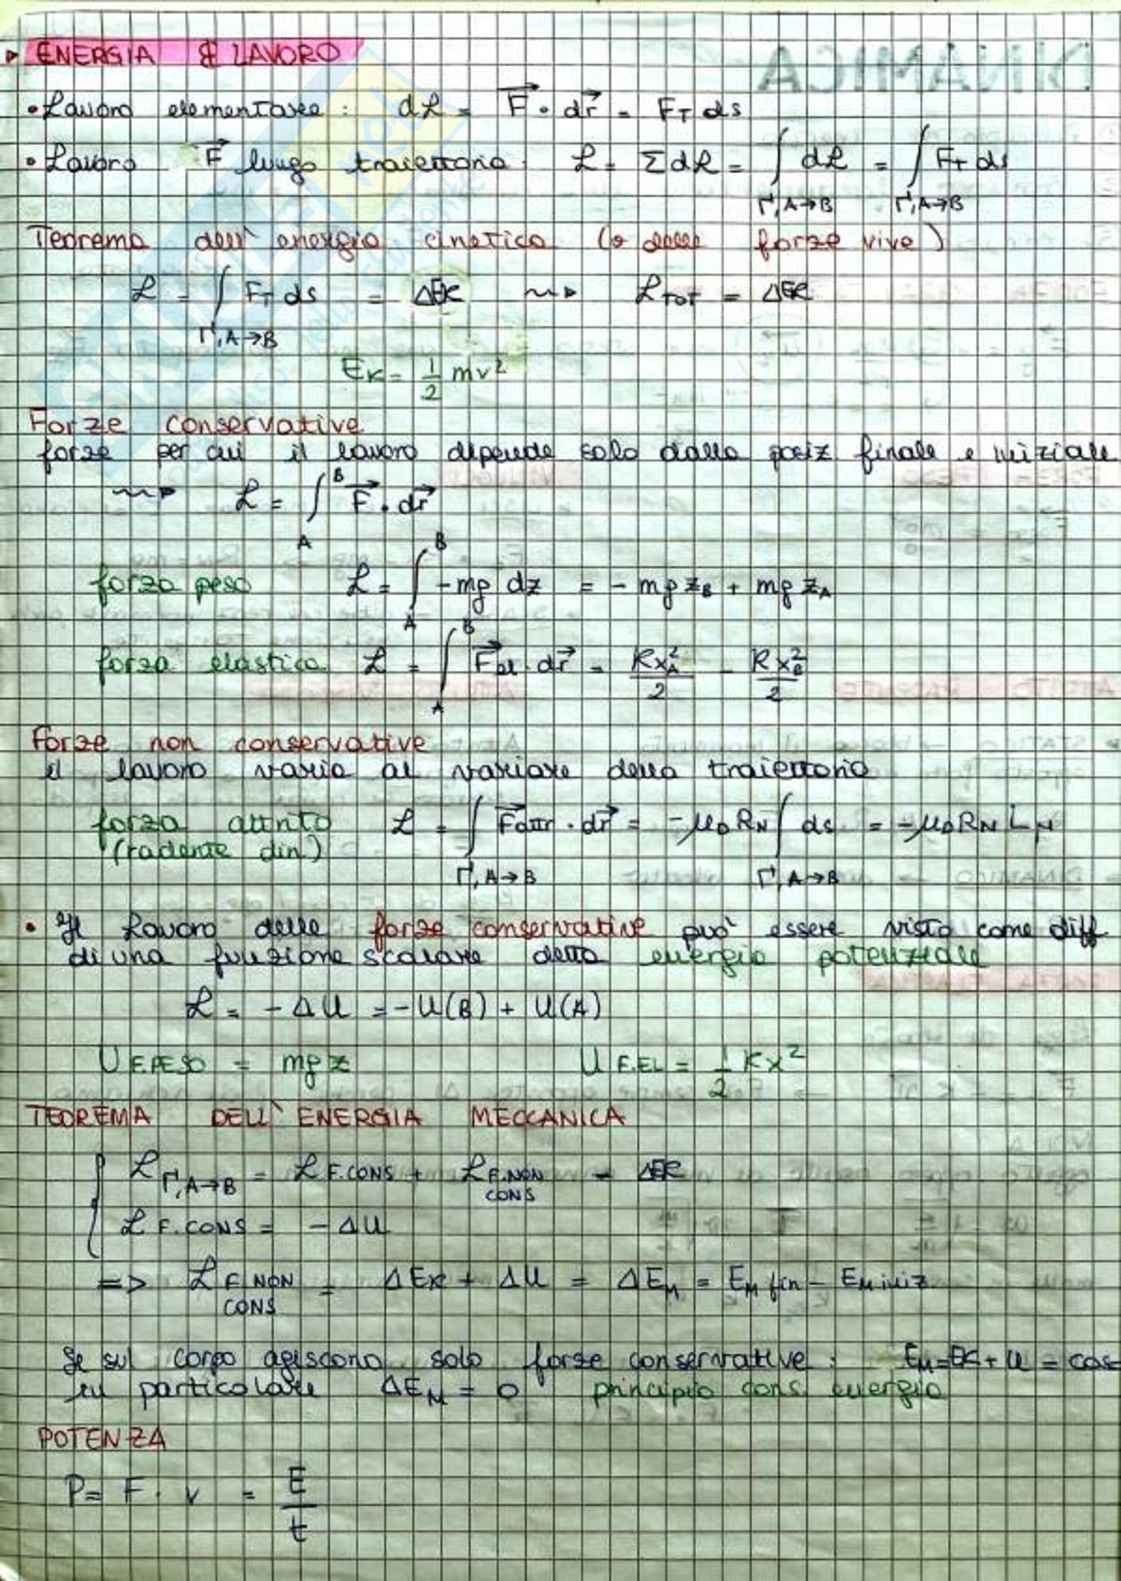 ▸ ENERGIA & LAVORO
• Lavoro elementare : dℒ = F⃗ · dr⃗ = F_T ds
• Lavoro F⃗ lungo traiettoria : ℒ = Σ dℒ = ∫_{Γ, A→B} dℒ = ∫_{Γ, A→B} F_T ds
Teorema dell' energia cinetica (o delle forze vive)
ℒ = ∫_{Γ, A→B} F_T ds = ΔEk ⇝ ℒ_TOT = ΔEk
E_K = 1/2 mv²
Forze conservative
forze per cui il lavoro dipende solo dalla posiz finale e iniziale
⇝ ℒ = ∫_A^B F⃗ · dr⃗
forza peso ℒ = ∫_A^B -mg dz = - mg z_B + mg z_A
forza elastica ℒ = ∫_A^B F⃗_el · dr⃗ = Kx_A²/2 - Kx_B²/2
Forze non conservative
il lavoro varia al variare della traiettoria
forza attrito ℒ = ∫_{Γ, A→B} F⃗attr · dr⃗ = -μ_D R_N ∫_{Γ, A→B} ds = -μ_D R_N L
(radente din.)
• Il lavoro delle forze conservative può essere visto come diff
di una funzione scalare detta energia potenziale
ℒ = - ΔU = -U(B) + U(A)
U F.PESO = mgz U F.EL = 1/2 Kx²
TEOREMA DELL' ENERGIA MECCANICA
{ ℒ_{Γ, A→B} = ℒ F.CONS + ℒ F.NON CONS = ΔEk
ℒ F.CONS = - ΔU
=> ℒ F. NON CONS = ΔEk + ΔU = ΔE_M = E_M fin - E_M iniz
Se sul corpo agiscono solo forze conservative : E_M = Ek + U = cos
in particolare ΔE_M = 0 principio cons. energia
POTENZA
P = F · v = E/t